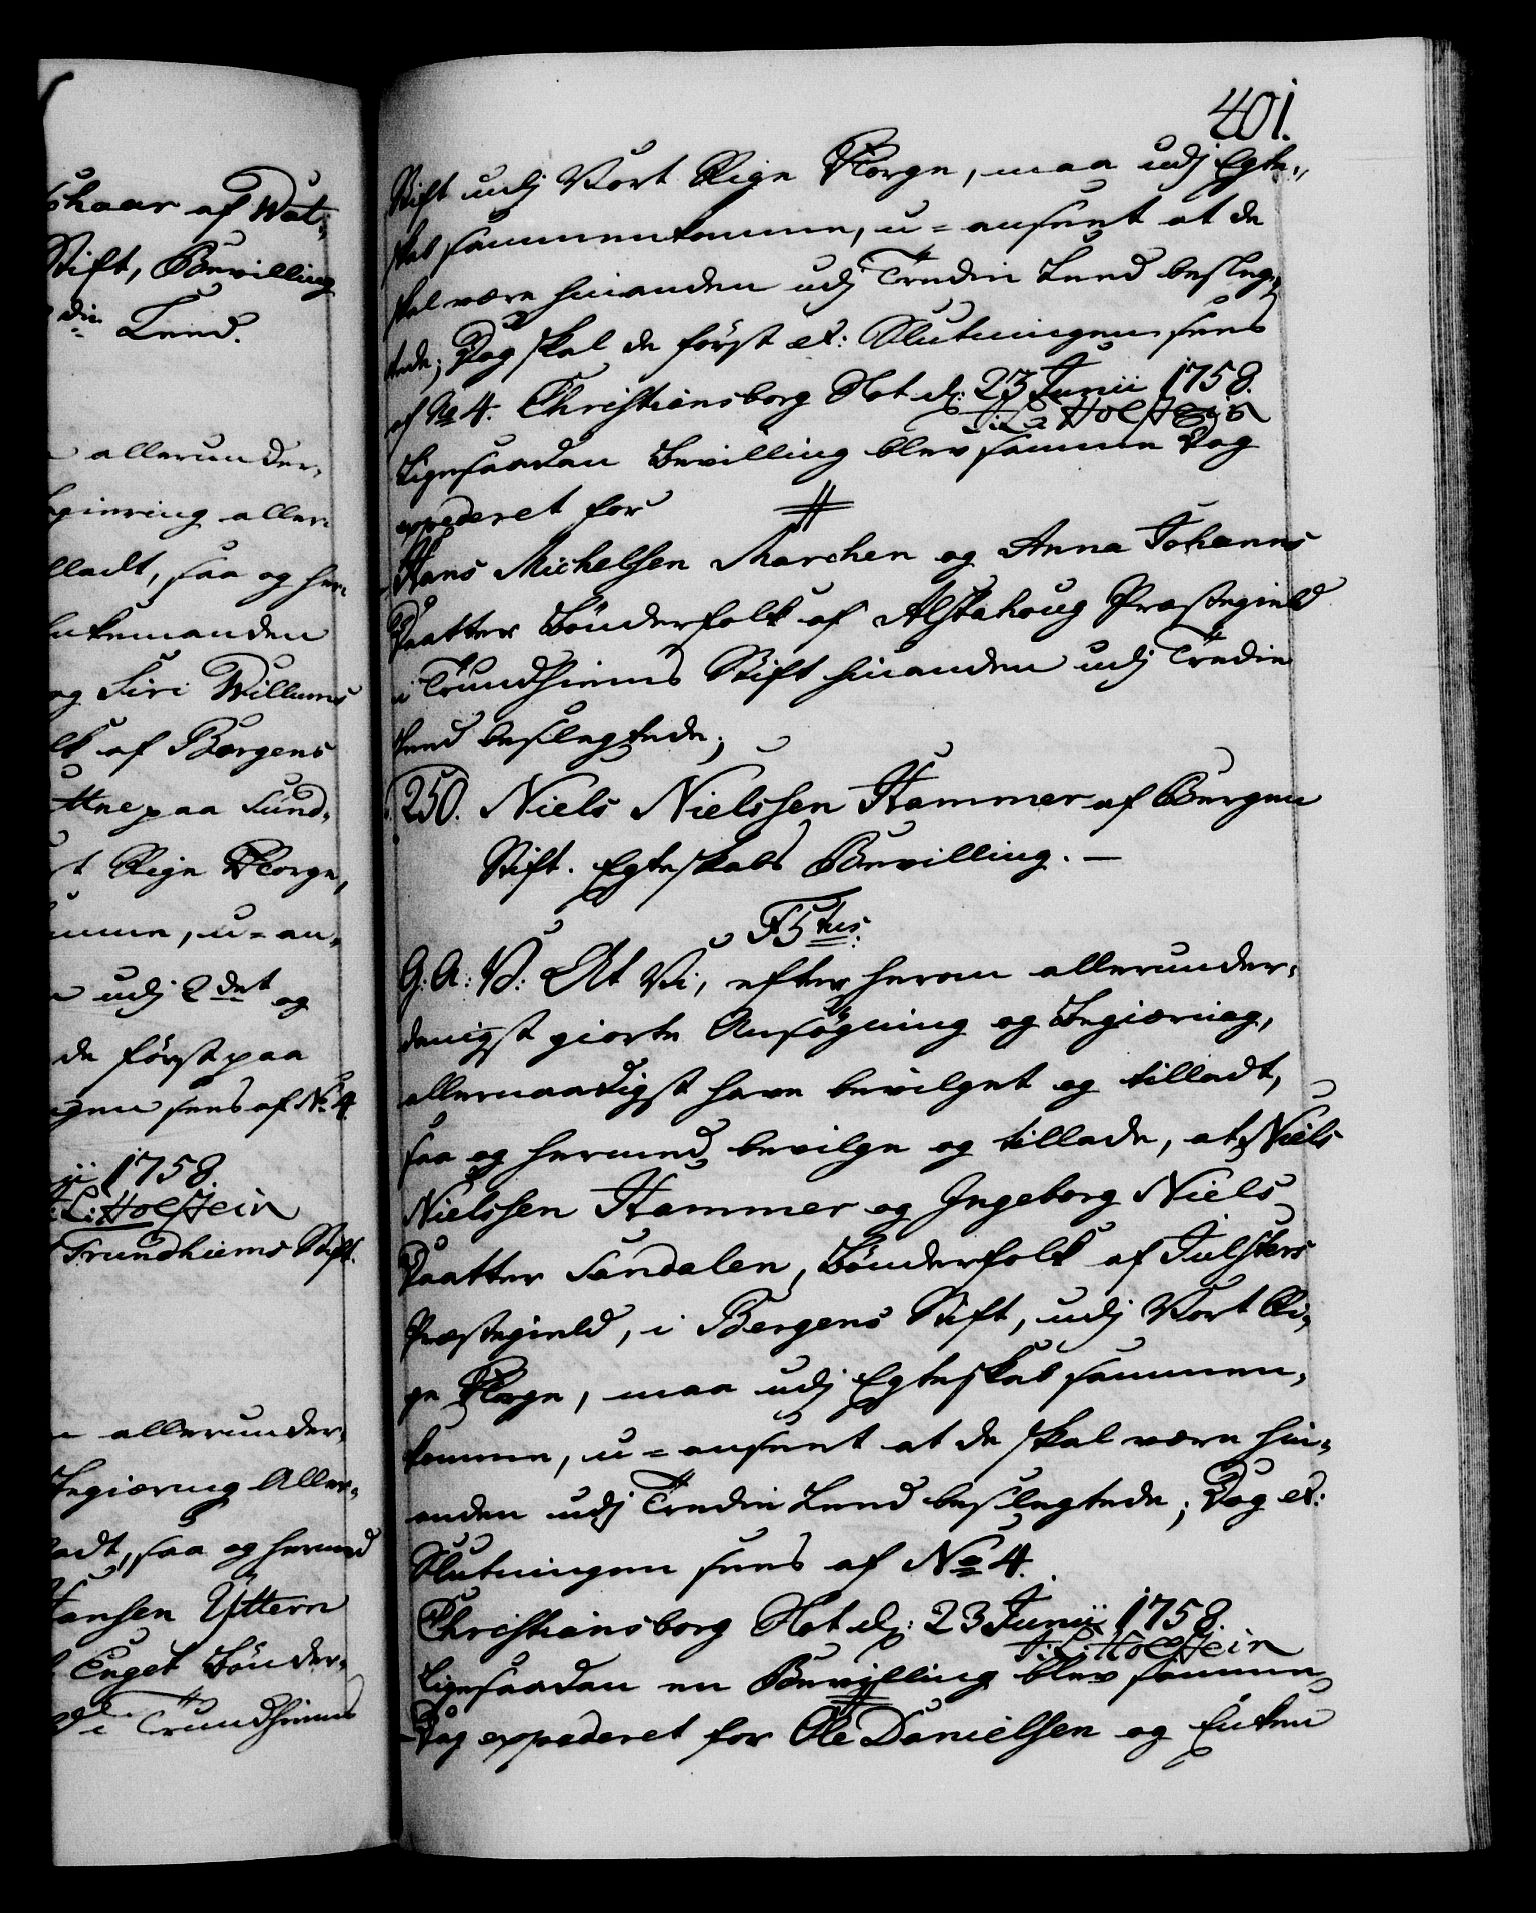 shaar af Wat-
Stift, Bevilling
din Leed.
allerunder-
begiering aller-
lladt, saa og her-
Enkemanden
og Siri Willums
lk af Bergens
ttne paa Sund-
t Rige Norge,
umme, u=an-
udj 2det og
de först paa
ngen sees af No 4
ii 1758.
J: L: Holstein
Trundhiems Stift.
allerunder-
Begiæring Aller-
ladt, saa og hermed
Jansen Yttern
Enget Bönder-
i Trundhiems
401.
Stift udj Vort Rige Norge, maa udj Egte-
skab sammenkomme, u=anseet at de
skal være hinanden udj Tredie Leed beslæg-
tede; Dog skal de först et: Slutningen sees
af No 4. Christiansborg Slot d: 23 Junii 1758.
J: L: Holstein
Ligesaadan Bevilling blev samme Dag
expederet for
Hans Michelsen Marchen og Anna Johanns
Daatter Bönderfolk af Alstahoug Præstegield
i Trundhiems Stift hinanden udj Tredie
Leed beslægtede;
250. Niels Nielssen Hammer af Bergen
Stift. Egteskabs Bevilling. —
F5tus.
G: A: V: At Vi, efter herom allerunder-
danigst giorte Ansögning og Begiæring,
allernaadigst have bevilget og tilladt,
saa og hermed bevilge og tillade, at Niels
Nielssen Hammer og Ingeborg Niels
Daatter Sandalen, Bönderfolk af Julsters
Præstegield, i Bergens Stift, udj Vort Ri-
ge Norge, maa udj Egteskab sammen-
komme, u=anseet at de skal være hin-
anden udj Tredie Leed beslægtede; Dog et:
Slutningen sees af No 4.
Christiansborg Slot d: 23 Junii 1758.
J: L: Holstein
Ligesaadan en Bevilling blev samme
Dag expederet for Ole Danielsen og Enken